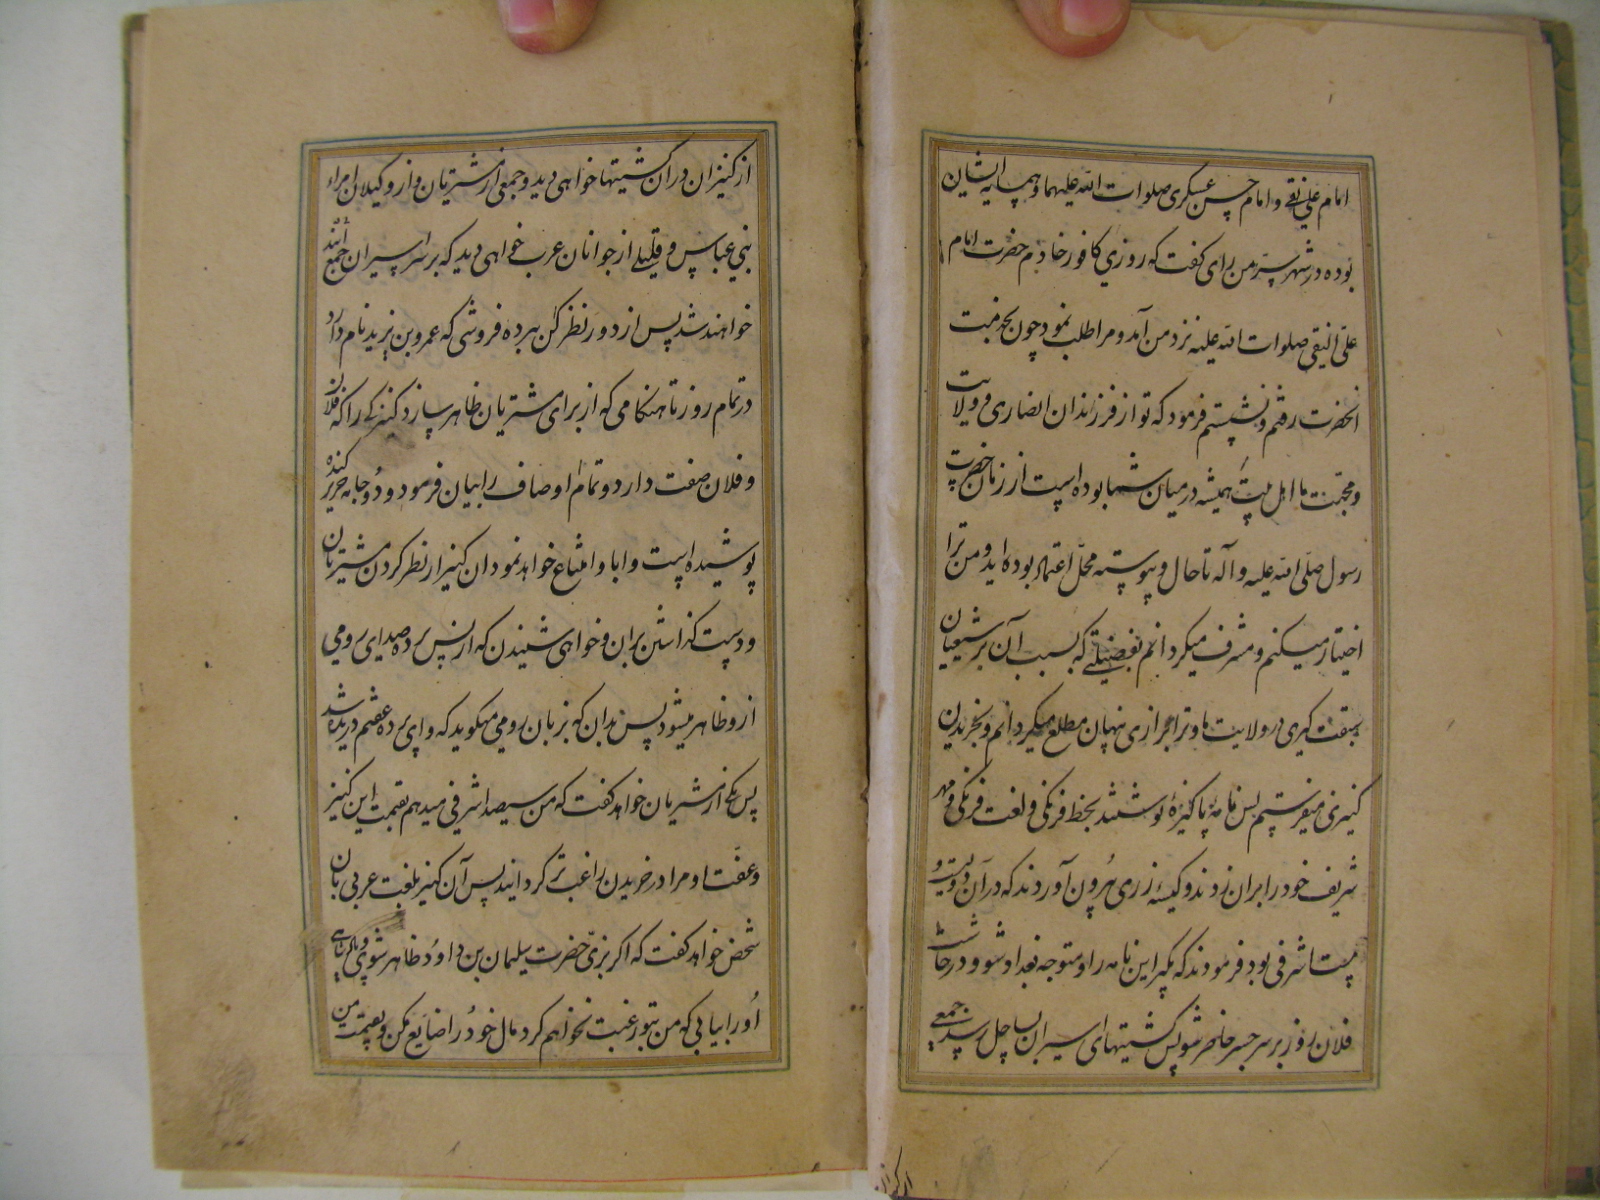 امام علی نقی و امام حسن عسکری صلوات الله علیهما و همسایه ایشان
بوده در شهر سرّ من رای گفت که روزی کافور خادم حضرت امام
علی النقی صلوات الله علیه نزد من آمد و مرا طلب نمود چون بخدمت
انحضرت رفتم و نشستم فرمود که تو از فرزندان انصاری و ولایت
و محبت ما اهل بیت همیشه در میان شما بوده است از زمان حضرت
رسول صلّی الله علیه و آله تا حال و پیوسته محلّ اعتماد بوده اید و من ترا
اختیار میکنم و مشرف میکردانم بفضیلتی که بسبب آن بر شیعیان
سبقت گیری در ولایت ما و ترا برازی پنهان مطلع میکردانم و بخریدن
کنیزی میفرستم پس نامهٔ پاکیزهٔ نوشتند بخط فرنکی و لغت فرنکی و مهر
شریف خود را بران زدند و کیسهٔ زری بیرون آوردند که در آن دویست و
بیست اشرفی بود فرمودند که بگیر این نامه را و متوجه بغداد شو و در چاشت
فلان روز بر سر جسر حاضر شو پس کشتیهای اسیران بساحل رسد جمعی
از کنیزان
از کنیزان در ان کشتیها خواهی دید و جمعی از مشتریان و از وکیلان امراء
بنی عباس و قلیلی از جوانان عرب خواهی دید که بر سر اسیران جمع
خواهند شد پس از دور نظر کن ببرده فروشی که عمرو بن یزید نام دارد
در تمام روز تا هنکامی که از برای مشتریان ظاهر سازد کنیزکی را که فلان
و فلان صفت دارد و تمام اوصاف را بیان فرمود و دو جامه حریر کنده
پوشیده است و ابا و امتناع خواهد نمود ان کنیز از نظر کردن مشتریان
و دست گذاشتن بر ان و خواهی شنیدن که از پس پرده صدای رومی
از و ظاهر میشود پس بدان که بزبان رومی میکوید که وای پرده عفتم دریده شد
پس یکی از مشتریان خواهد گفت که من سیصد اشرفی میدهم بقیمت این کنیز
و عفّت او مرا در خریدن راغب تر کردانید پس آن کنیز بلغت عربی بان
شخص خواهد گفت که اگر بزیّ حضرت سلیمان بن داود ظاهر شوی و پادشاهی
او را بیابی که من بتو رغبت نخواهم کرد مال خود را ضایع مکن و بقیمت من